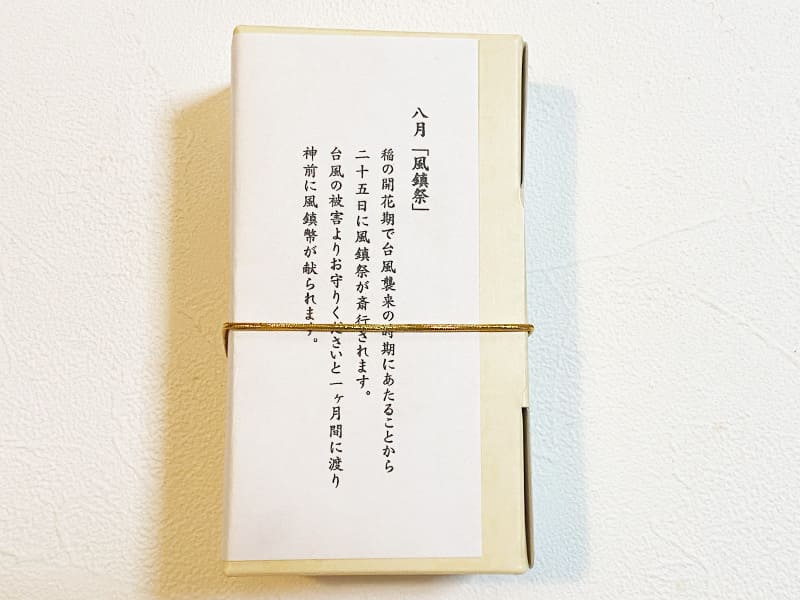 八月「風鎮祭」
稲の開花期で台風襲来の時期にあたることから
二十五日に風鎮祭が斎行されます。
台風の被害よりお守りくださいと一ヶ月間に渡り
神前に風鎮幣が献られます。